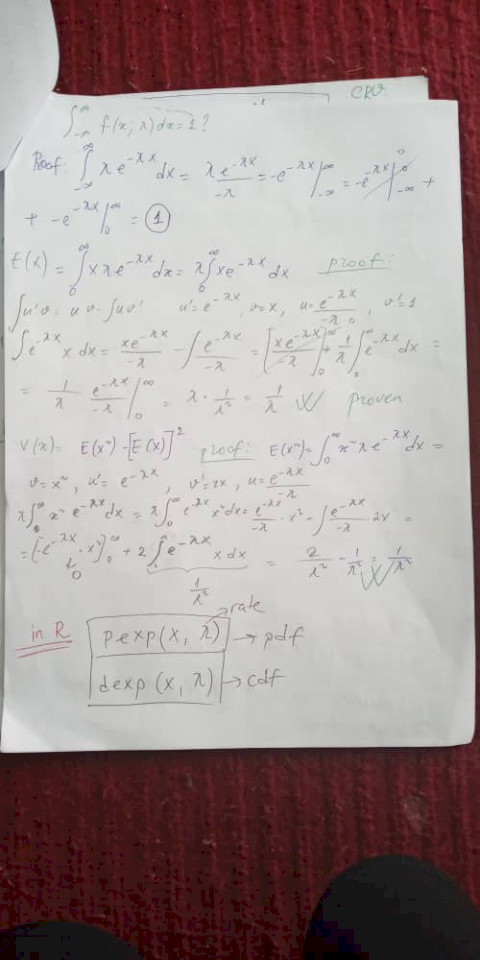 CRV.
∫_{-∞}^{∞} f(x; λ) dx = 1?
Proof: ∫_{-∞}^{∞} λ e^{-λx} dx = λ e^{-λx}/-λ = -e^{-λx} |_{-∞}^{∞} = -e^{-λx} |_{-∞}^{0} +
+ -e^{-λx} |_{0}^{∞} = 1
E(x) = ∫_{0}^{∞} x λ e^{-λx} dx = λ ∫_{0}^{∞} x e^{-λx} dx proof:
∫u'v = uv - ∫uv' u' = e^{-λx}, v = x, u = e^{-λx}/-λ, v' = 1
∫e^{-λx} x dx = xe^{-λx}/-λ - ∫ e^{-λx}/-λ = [xe^{-λx}/-λ]_{0}^{∞} + 1/λ ∫_{0}^{∞} e^{-λx} dx =
= 1/λ e^{-λx}/-λ |_{0}^{∞} = λ · 1/λ² = 1/λ proven
V(x) = E(x²) - [E(x)]² proof: E(x²) = ∫_{0}^{∞} x² λ e^{-λx} dx =
v = x², u' = e^{-λx}, v' = 2x, u = e^{-λx}/-λ
λ ∫_{0}^{∞} x² e^{-λx} dx = λ ∫_{0}^{∞} e^{-λx} x² dx = e^{-λx}/-λ · x² - ∫ e^{-λx}/-λ · 2x =
= [-e^{-λx} · x²]_{0}^{∞} + 2 ∫_{0}^{∞} e^{-λx} x dx = 2/λ² - 1/λ² = 1/λ²
0
1/λ²
rate
in R pexp(x, λ) → pdf
dexp (x, λ) → cdf